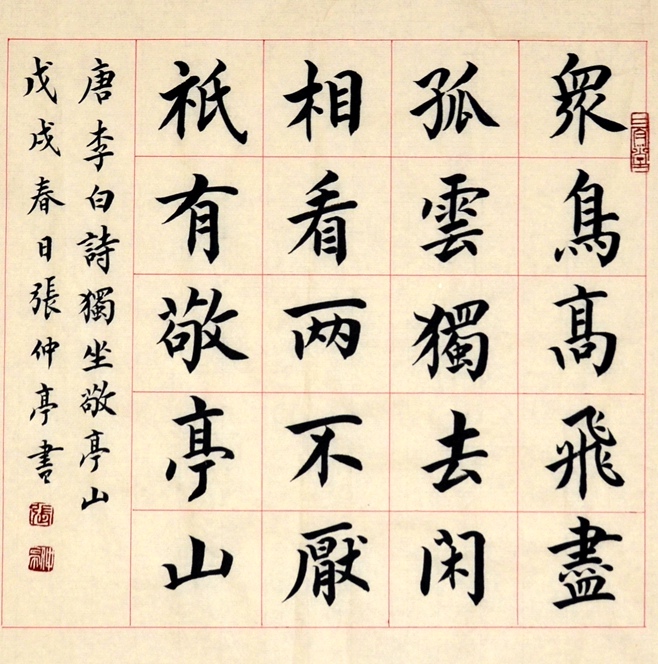 眾鳥高飛盡
孤雲獨去閑
相看两不厭
祇有敬亭山
唐李白詩獨坐敬亭山
戊戌春日張仲亭書